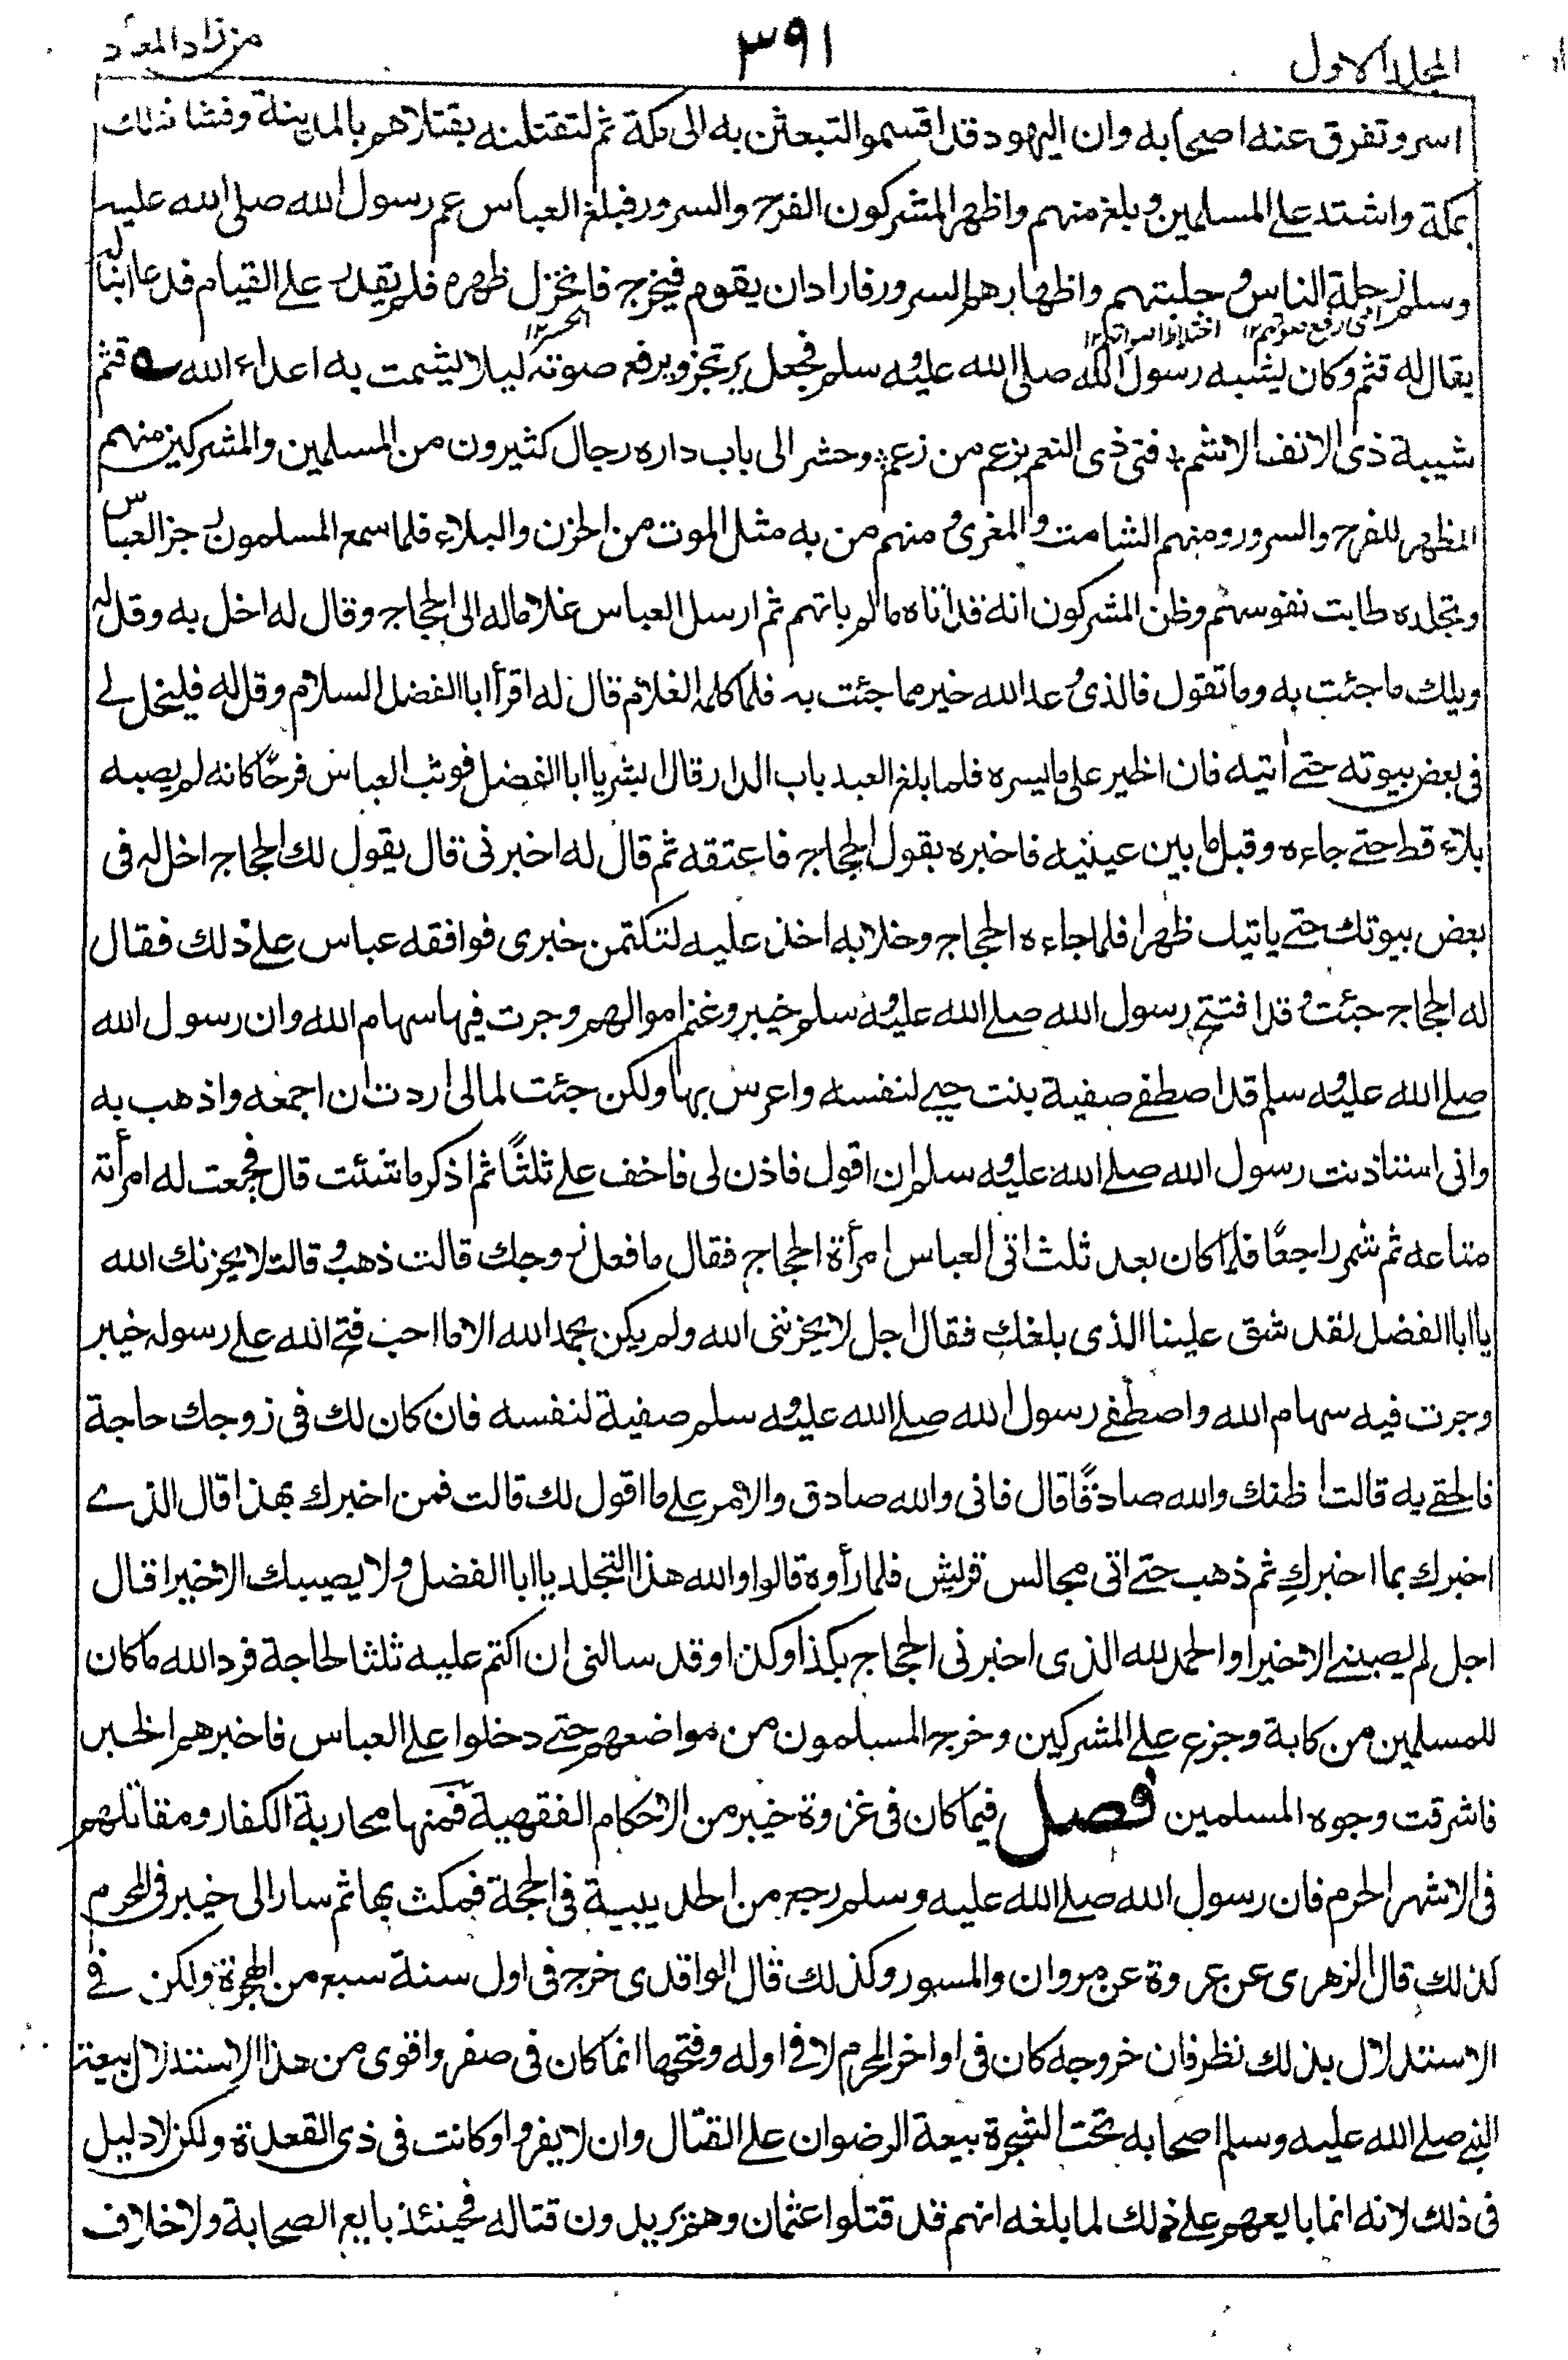 المجلد الاول
٣٩١
من زاد المعاد
اسر وتفرق عنه اصحابه وان اليهود قد اقسموا لتبعثن به الى مكة ثم لتقتلنه بقتلاهم بالمدينة وفشا ذلك
بمكة واشتد على المسلمين وبلغ منهم واظهر المشركون الفرح والسرور فبلغ العباس عم رسول الله صلى الله عليه
وسلم زجلة الناس وجلبتهم واظهارهم السرور فاراد ان يقوم فيخرج فانخزل ظهره فلم يقدر على القيام فدعا ابنا له
اى رفع صوتهم ١٢ اختلاط اصواتهم ١٢
يقال له قثم وكان يشبه رسول الله صلى الله عليه وسلم فجعل يرتجز ويرفع صوته ليلا يشمت به اعداء الله قثم
شيبة ذى الانف الاشم فتى ذى النعم بزعم من زعم وحشر الى باب داره رجال كثيرون من المسلمين والمشركين منهم
المظهر للفرح والسرور ومنهم الشامت والمغرى ومنهم من به مثل الموت من الحزن والبلاء فلما سمع المسلمون رجز العباس
وتجلده طابت نفوسهم وظن المشركون انه قد اتاه ما لم ياتهم ثم ارسل العباس غلاما له الى الحجاج وقال له اخل به وقل له
ويلك ما جئت به وما تقول فالذى وعد الله خير مما جئت به فلما كلمه الغلام قال له اقرأ ابا الفضل السلام وقل له فليخل لى
فى بعض بيوته حتى اتيه فان الخير على ما يسره فلما بلغ العبد باب الدار قال ابشر يا ابا الفضل فوثب العباس فرحا كانه لم يصبه
بلاء قط حتى جاءه وقبل ما بين عينيه فاخبره بقول الحجاج فاعتقه ثم قال له اخبرنى قال يقول لك الحجاج اخل له فى
بعض بيوتك حتى ياتيك ظهرا فلما جاءه الحجاج وخلا به اخذ عليه لتكتمن خبرى فوافقه عباس على ذلك فقال
له الحجاج جئت وقد افتتح رسول الله صلى الله عليه وسلم خيبر وغنم اموالهم وجرت فيها سهام الله وان رسول الله
صلى الله عليه وسلم قد اصطفى صفية بنت حيى لنفسه واعرس بها ولكن جئت لمالى اردت ان اجمعه واذهب به
وانى استاذنت رسول الله صلى الله عليه وسلم ان اقول فاذن لى فاخف على ثلثا ثم اذكر ما شئت قال فجمعت له امرأته
متاعه ثم شمر راجعا فلما كان بعد ثلث اتى العباس امرأة الحجاج فقال ما فعل زوجك قالت ذهب وقالت لا يحزنك الله
يا ابا الفضل لقد شق علينا الذى بلغك فقال اجل لا يحزننى الله ولم يكن بحمد الله الا ما احب فتح الله على رسوله خيبر
وجرت فيه سهام الله واصطفى رسول الله صلى الله عليه وسلم صفية لنفسه فان كان لك فى زوجك حاجة
فالحقى به قالت اظنك والله صادقا قال فانى والله صادق والامر على ما اقول لك قالت فمن اخبرك بهذا قال الذى
اخبرك بما اخبرك ثم ذهب حتى اتى مجالس قريش فلما رأوه قالوا والله هذا التجلد يا ابا الفضل ولا يصيبك الا خيرا قال
اجل لم يصبنى الا خيرا والحمد لله الذى اخبرنى الحجاج بكذا وكذا وقد سالنى ان اكتم عليه ثلثا لحاجة فرد الله ما كان
للمسلمين من كابة وجزع على المشركين وخرج المسلمون من مواضعهم حتى دخلوا على العباس فاخبرهم الخبر
فاشرقت وجوه المسلمين فصل فيما كان فى غزوة خيبر من الاحكام الفقهية فمنها محاربة الكفار ومقاتلهم
فى الاشهر الحرم فان رسول الله صلى الله عليه وسلم رجع من الحديبية فى الحجة فمكث بها ثم سار الى خيبر فى المحرم
كذلك قال الزهرى عن عروة عن مروان والمسور وكذلك قال الواقدى خرج فى اول سنة سبع من الهجرة ولكن فى
الاستدلال بذلك نظر فان خروجه كان فى اواخر المحرم لا فى اوله وفتحها انما كان فى صفر واقوى من هذا الاستدلال بيعة
النبى صلى الله عليه وسلم اصحابه تحت الشجرة بيعة الرضوان على القتال وان لا يفروا وكانت فى ذى القعدة ولكن لا دليل
فى ذلك لانه انما بايعهم على ذلك لما بلغه انهم قد قتلوا عثمان وهم يريدون قتاله فحينئذ بايع الصحابة ولا خلاف